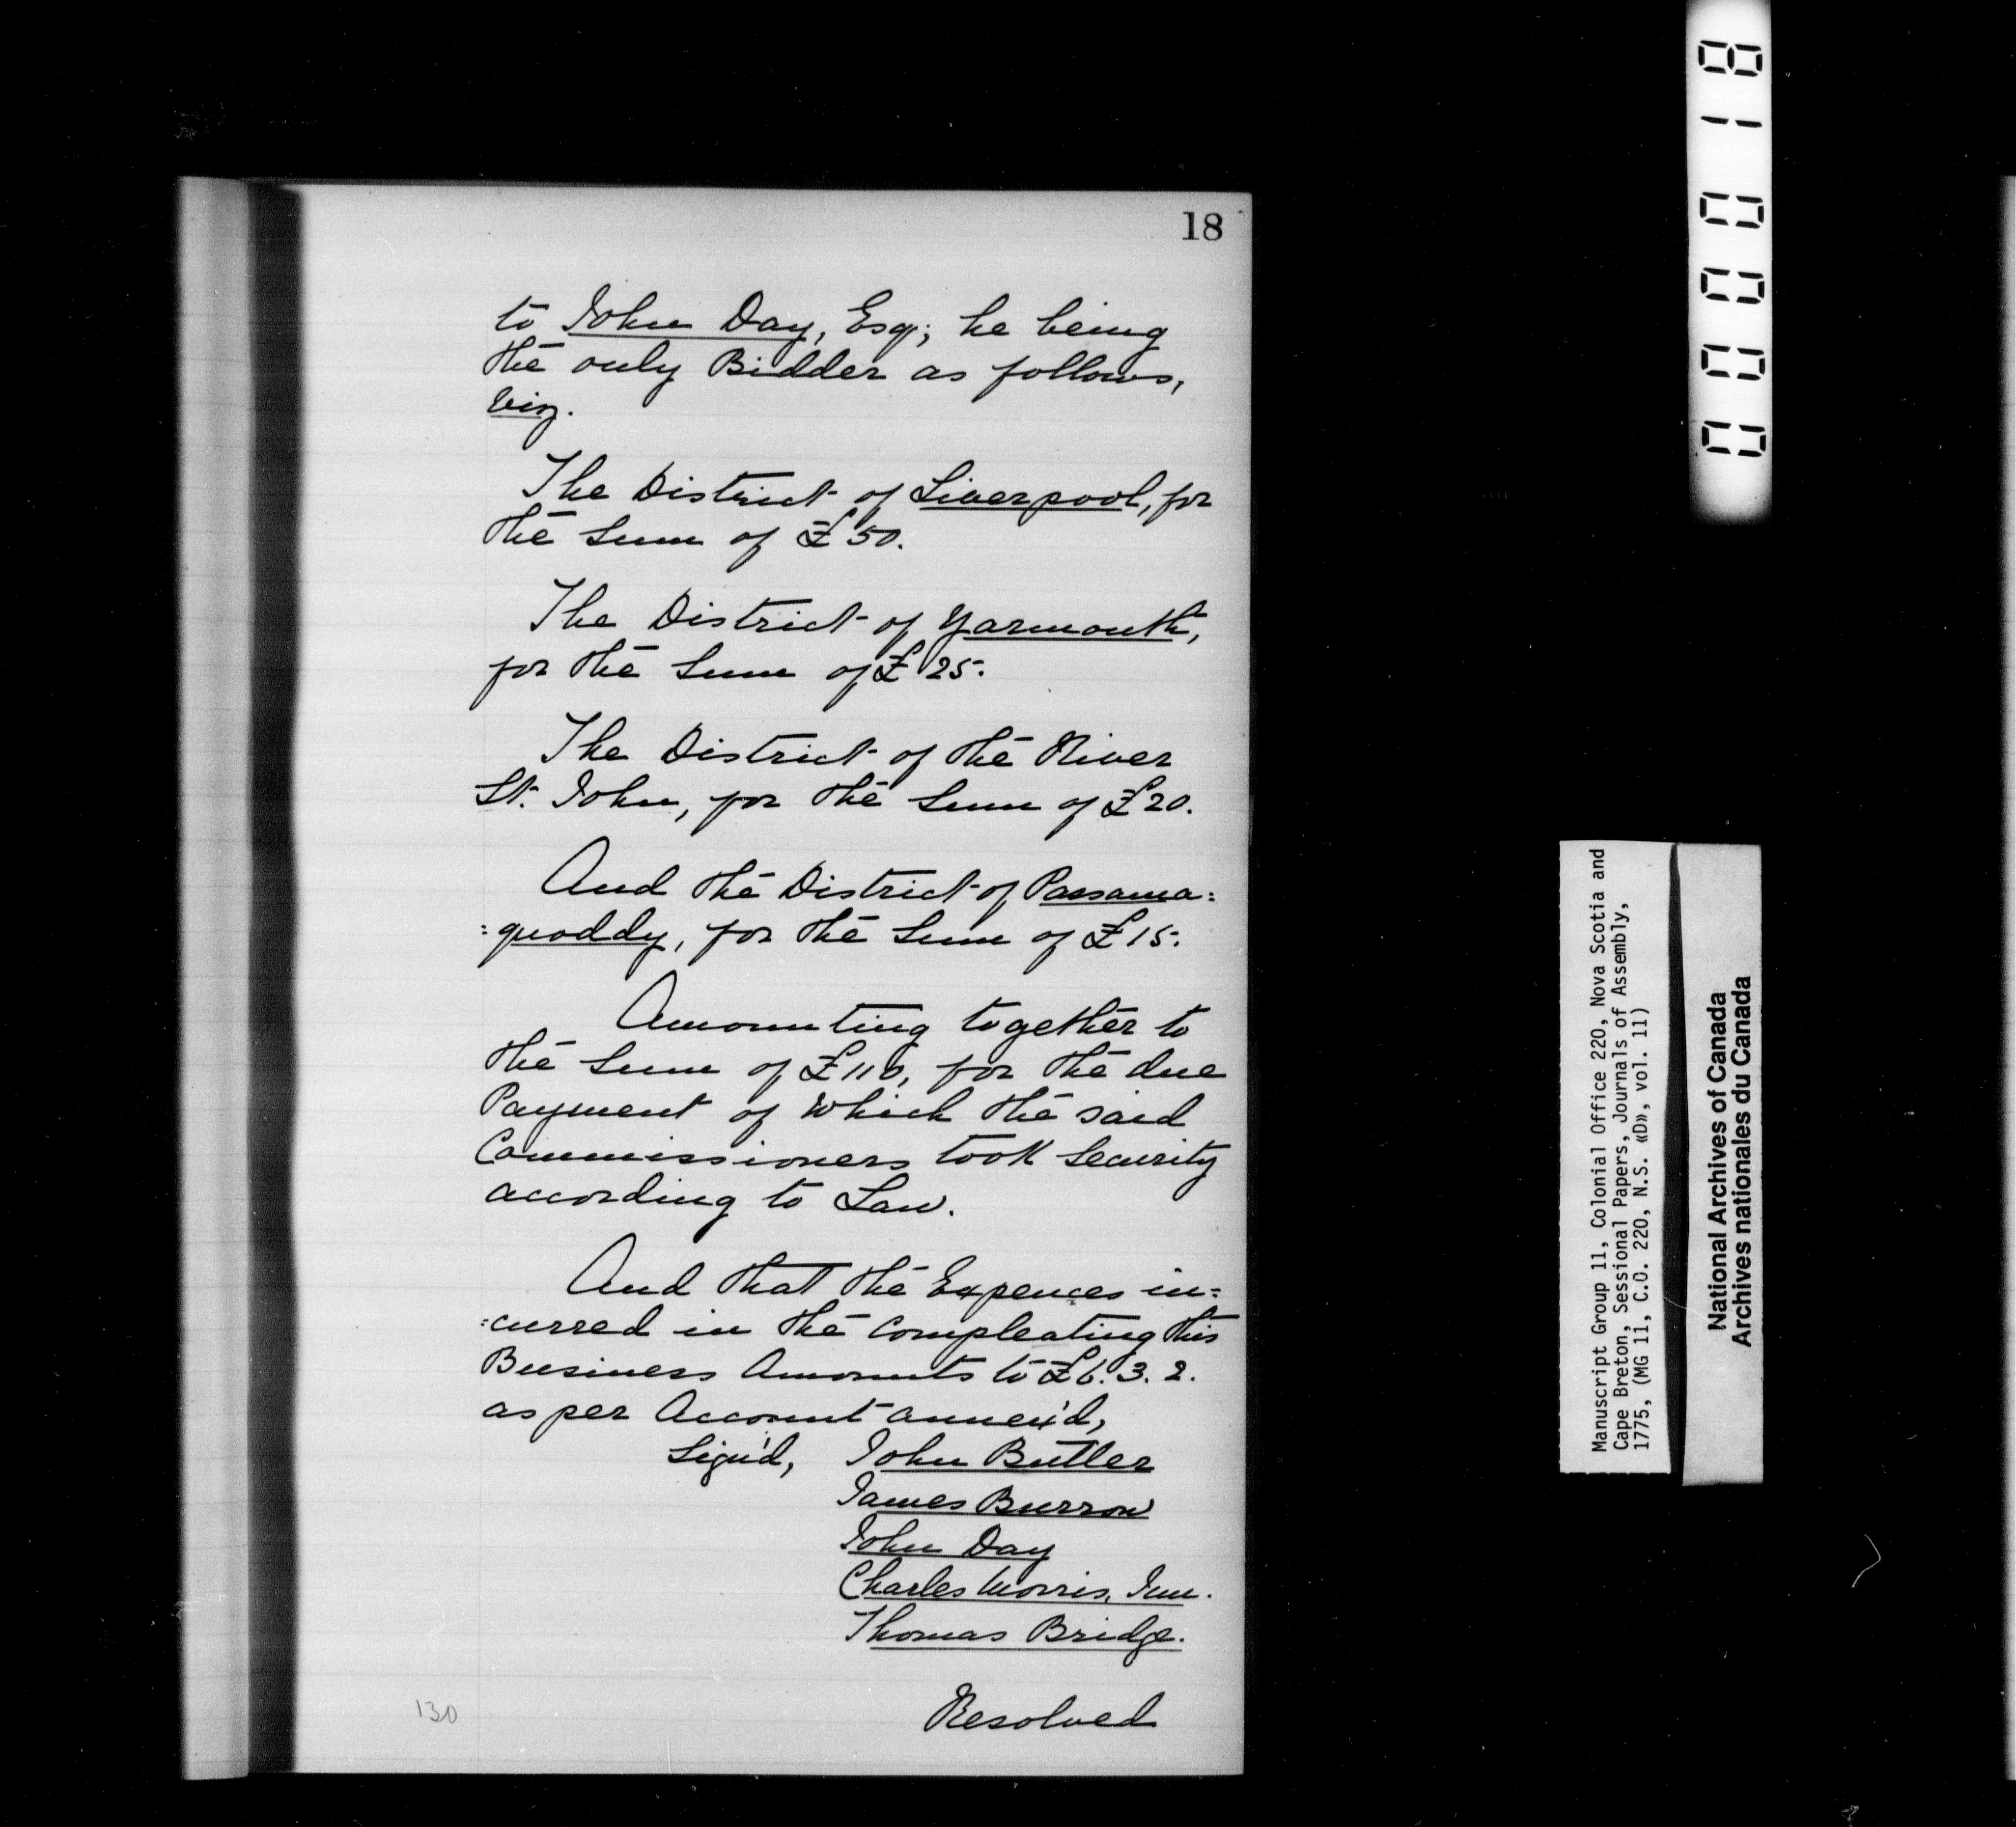 18
to John Day, Esq; he being
the only Bidder as follows,
viz.
The District of Liverpool, for
the Sum of £50.
The District of Yarmouth,
for the Sum of £25.
The District of the River
St. John, for the Sum of £20.
And the District of Passama=
=quoddy, for the Sum of £15.
Amounting together to
the Sum of £110, for the due
Payment of which the said
Commissioners took Security
according to Law.
And that the Expences in=
=curred in the compleating this
Business Amounts to £6. 3. 2.
as per Account annex'd,
Sign'd, John Butler
James Burrow
John Day
Charles Morris, Jun.
Thomas Bridge.
Resolved
130
000018
Manuscript Group 11, Colonial Office 220, Nova Scotia and
Cape Breton, Sessional Papers, Journals of Assembly,
1775, (MG 11, C.O. 220, N.S. «D», vol. 11)
National Archives of Canada
Archives nationales du Canada